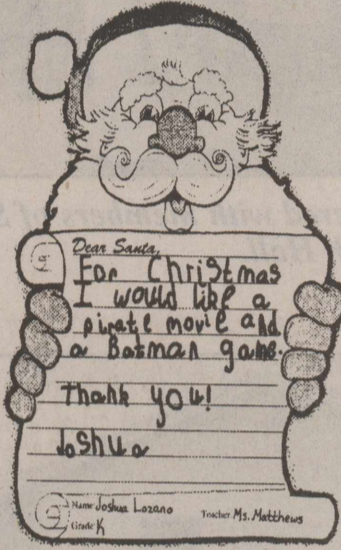 Dear Santa,
For Christmas
I would like a
pirate movie and
a Batman game.
Thank you!
Joshua
Name Joshua Lozano Teacher Ms. Matthews
Grade K